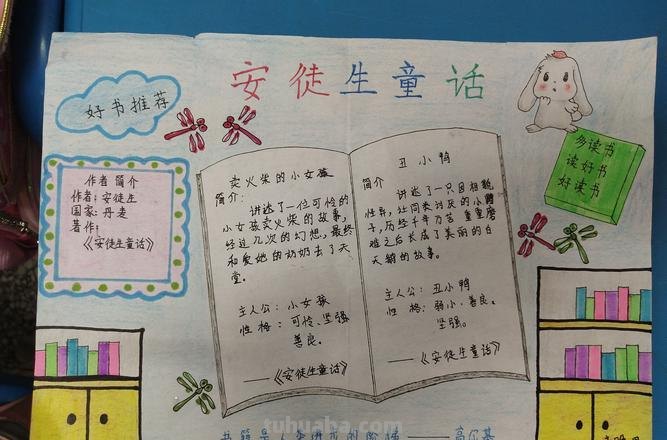 安徒生童话
好书推荐
多读书
读好书
好读书
作者简介
作者：安徒生
国家：丹麦
著作：
《安徒生童话》
卖火柴的小女孩
简介：
讲述了一位可怜的
小女孩卖火柴的故事，
经过几次的幻想，最终
和爱她的奶奶去了天
堂。
主人公：小女孩
性格：可怜、坚强
善良。
——《安徒生童话》
丑小鸭
简介
讲述了一只因相貌
怪异，让同类讨厌的小鸭
子，历经千辛万苦 重重磨
难之后长成了美丽的白
天鹅的故事。
主人公：丑小鸭
性格：弱小、善良。
坚强。
——《安徒生童话》
书籍是人类进步的阶梯——高尔基
tuhuaba.com